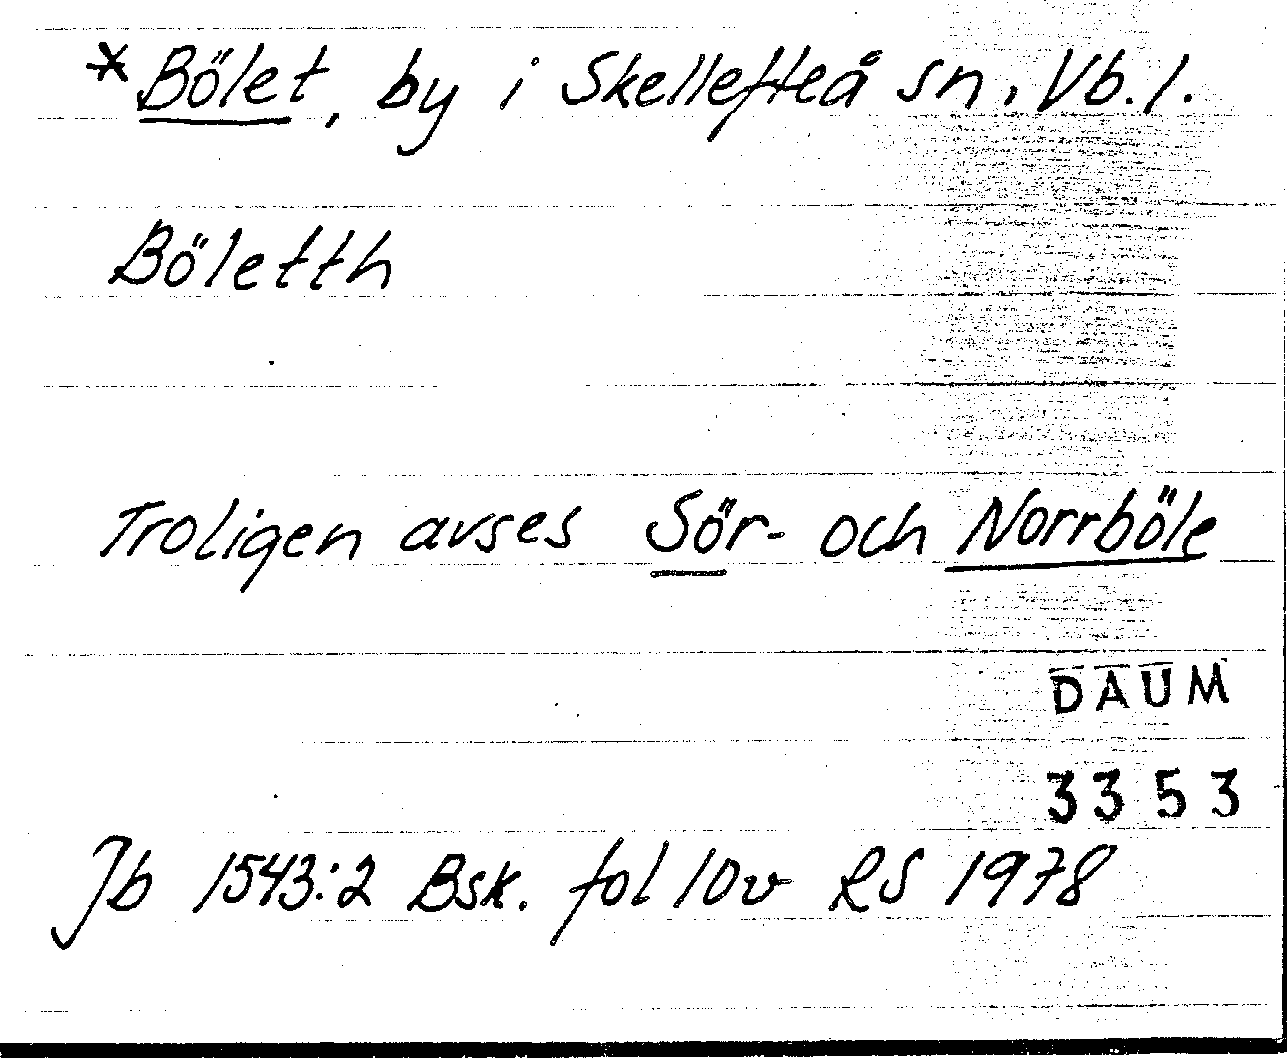 *Bölet, by i Skellefteå sn, Vb. l.
Böletth
Troligen avses Sör- och Norrböle
DAUM
3353
Jb 1543:2 Bsk. fol 10v RS 1978